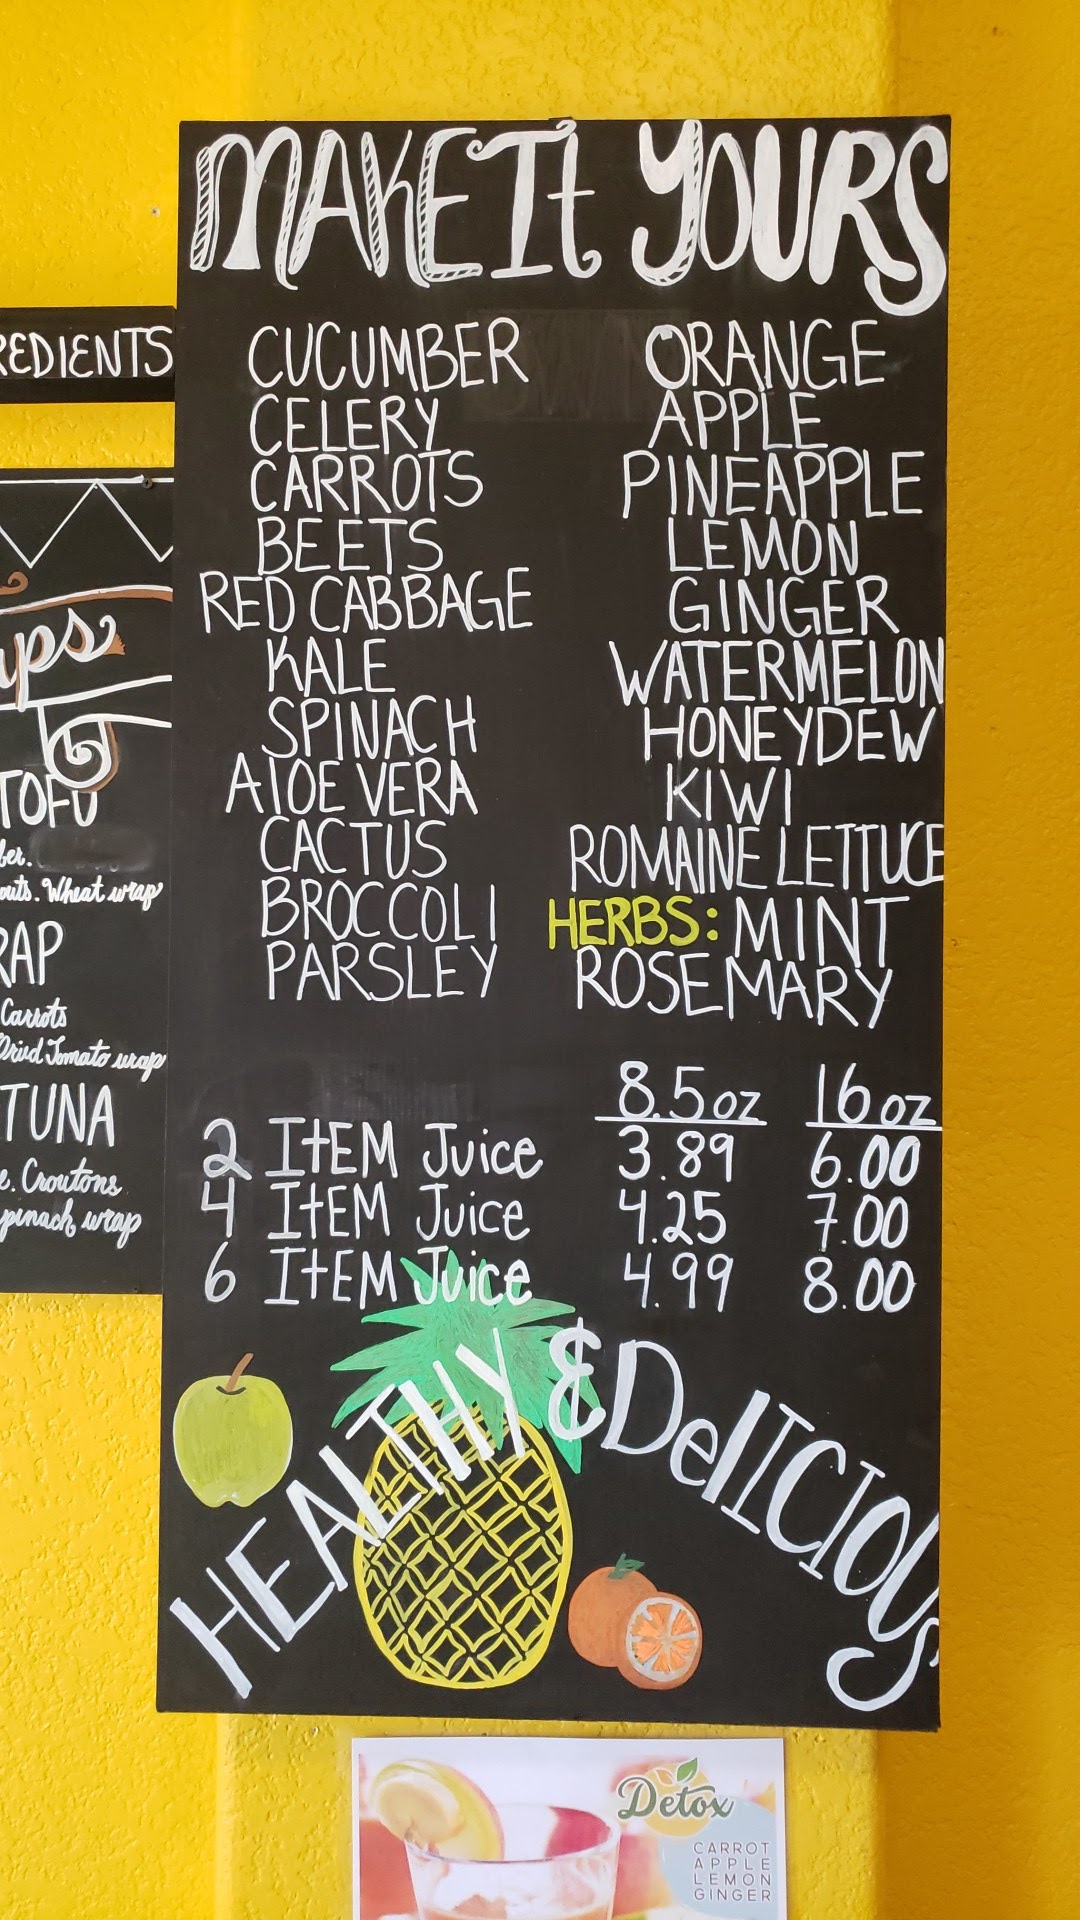 MAKE It YOURS
CUCUMBER
CELERY
CARROTS
BEETS
RED CABBAGE
KALE
SPINACH
AlOE VERA
CACTUS
BROCCOLI
PARSLEY
ORANGE
APPLE
PINEAPPLE
LEMON
GINGER
WATERMELON
HONEYDEW
KIWI
ROMAINE LETTUCE
HERBS: MINT
ROSEMARY
8.5 oz 16 oz
2 ItEM Juice 3.89 6.00
4 ItEM Juice 4.25 7.00
6 ItEM Juice 4.99 8.00
HEALTHY & DelICIOUS
REDIENTS
TOFU
Wheat wrap
RAP
Carrots
Tomato wrap
TUNA
Croutons
wrap
Detox
CARROT
APPLE
LEMON
GINGER